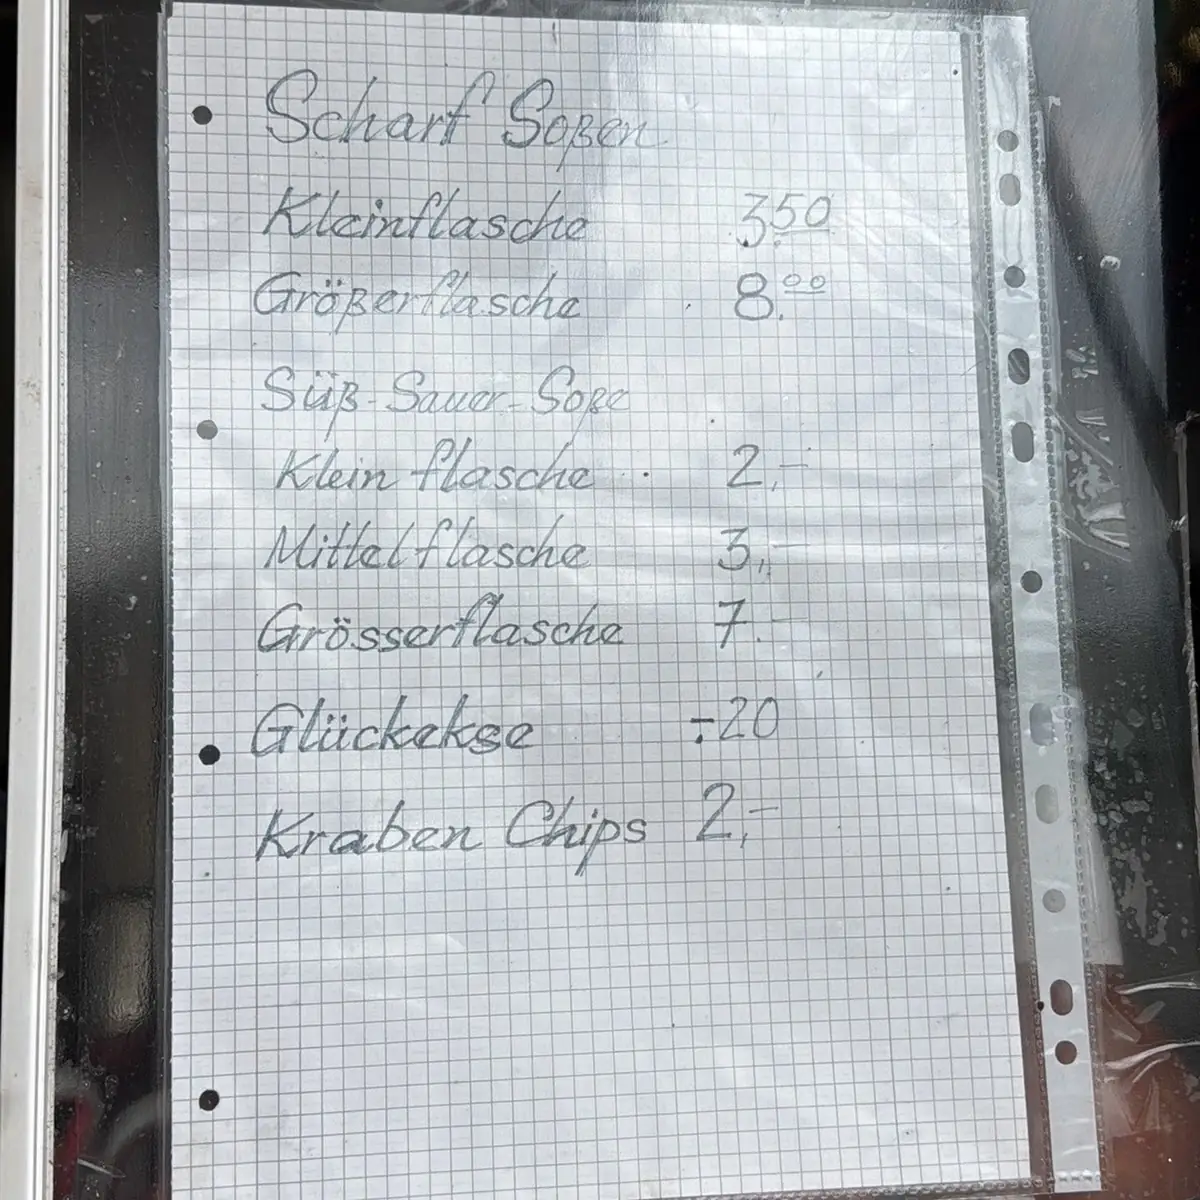 Scharf Soßen
Kleinflasche 3,50
Größerflasche 8.00
Süß-Sauer-Soße
Klein flasche 2,-
Mittelflasche 3,-
Grösserflasche 7.-
Glückekse -,20
Kraben Chips 2,-